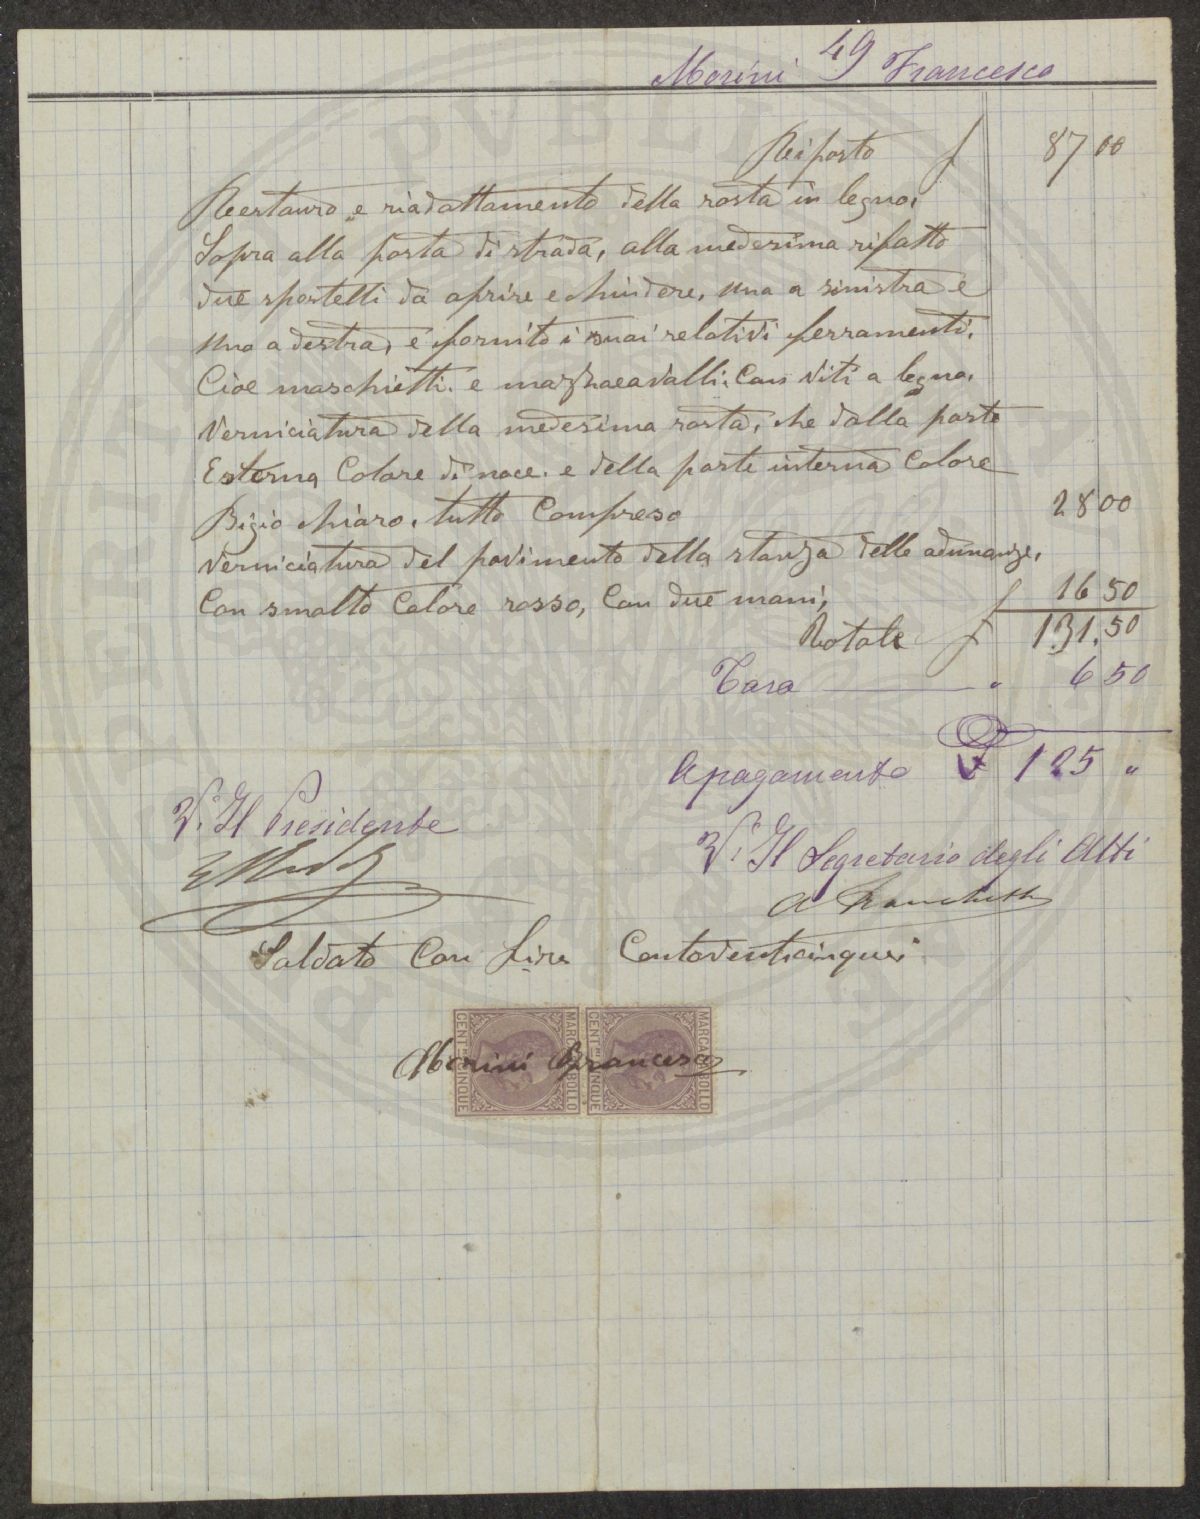 49
Morini Francesco
Reiporto £ 87 00
Reestauro e riadattamento della rosta in legno,
Sopra alla porta di strada, alla medesima rifatto
due sportelli da aprire e chiudere, una a sinistra e
uno a destra, e fornito i suoi relativi ferramenti,
Cioe maschietti. e Con viti a legno,
Verniciatura della medesima rosta, che dalla parte
Esterna Colore di noce. e della parte interna Colore
Bigio chiaro, tutto Compreso 28 00
Verniciatura del pavimento della stanza delle adunanze,
Con smalto Colore rosso, Con due mani, £ 16 50
Totale £ 131,50
Tara " 6 50
A pagamento £ 125 "
V. Il Presidente
V. Il Segretario degli Atti
A
Saldato Con Lire Centoventicinque
MARCA DA BOLLO
CENT. CINQUE
MARCA DA BOLLO
CENT. CINQUE
Morini Francesco